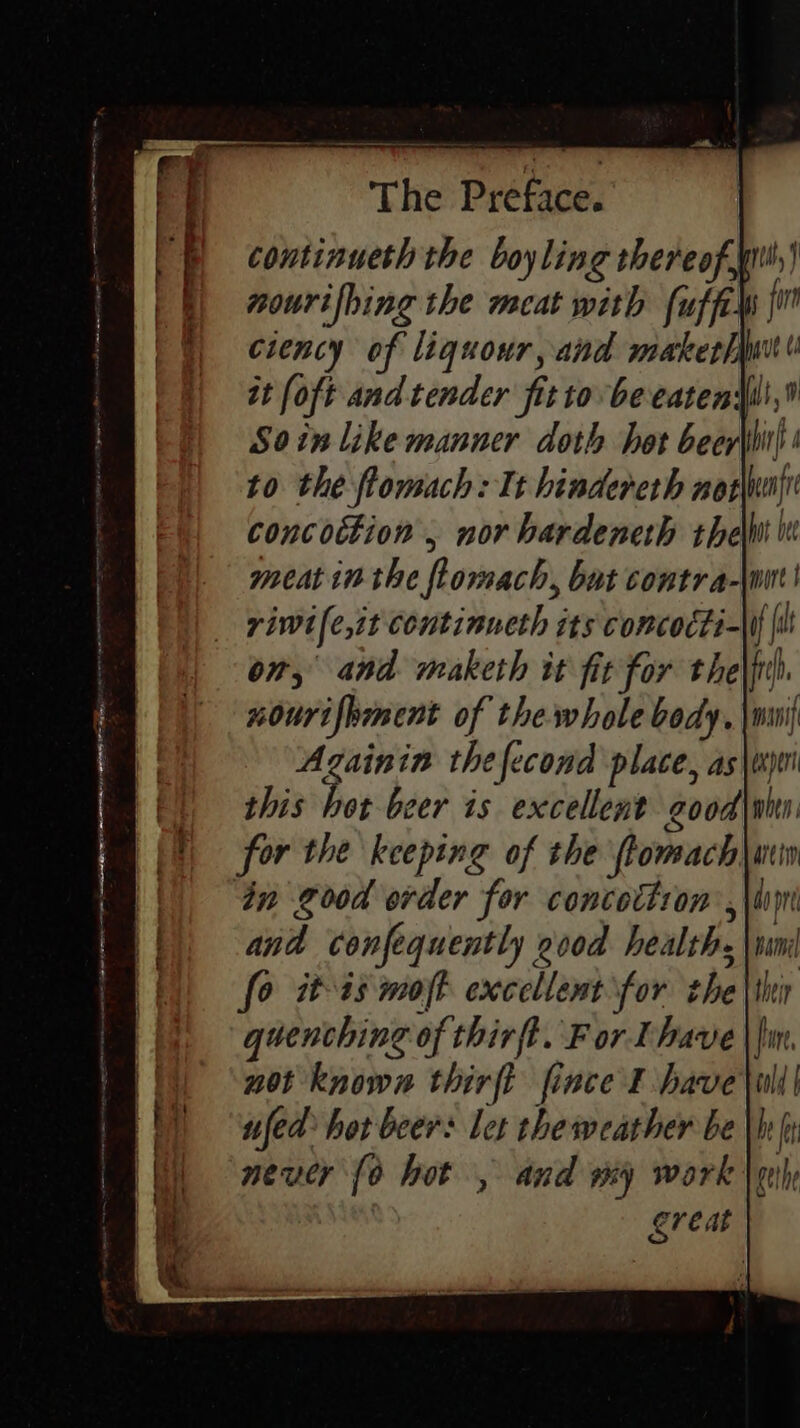 The Preface.
continueth the boyling thereof,
nouriſhing the meat with ſuffi-
ciency of liquour, and maketh
it ſoft and tender fit to be eaten:
So in like manner doth hot beer
to the ſtomach: It hindereth not
concoction, nor hardeneth the
meat in the ſtomach, but contra-
riwiſe, it continueth its concocti-
on, and maketh it fit for the
nouriſhment of the whole body.
Again in the ſecond place, as
this hot beer is excellent good
for the keeping of the ſtomach
in good order for concoction,
and conſequently good health:
ſo it is moſt excellent for the
quenching of thirſt. For I have
not known thirſt ſince I have
uſed hot beer: let the weather be
never ſo hot, and my work
great